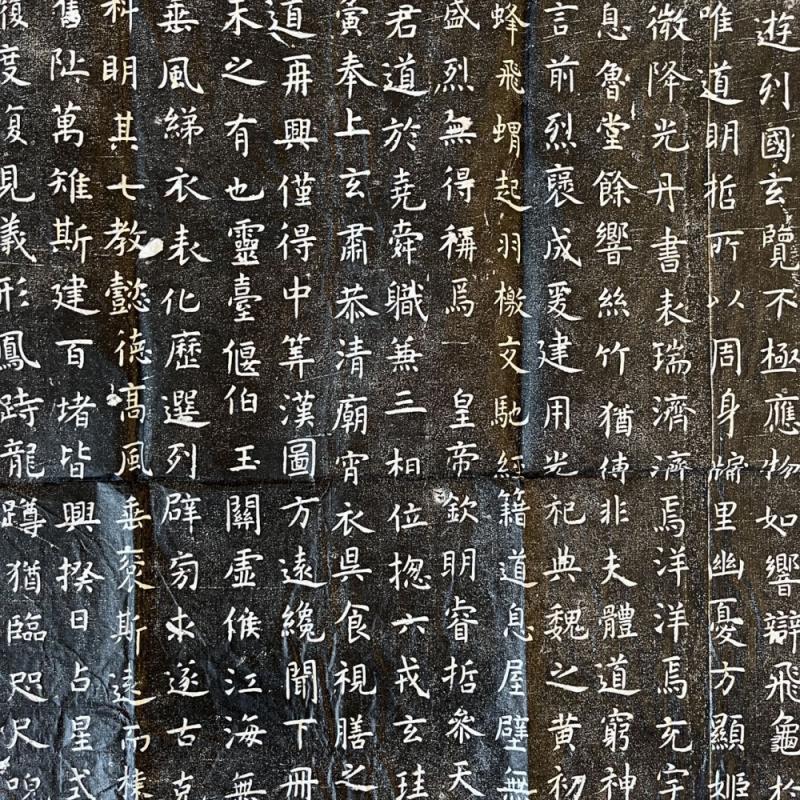 遊列國玄覽不極應物如響辯飛龜於
唯道明哲所以周身牖里幽憂方顯姬
微降光丹書表瑞濟濟焉洋洋焉充宇
息魯堂餘響絲竹猶傳非夫體道窮神
言前烈襃成爰建用光祀典魏之黃初
蜂飛蝟起羽檄交馳經籍道息屋壁無
盛烈無得稱焉 皇帝欽明睿哲參天
君道於堯舜職兼三相位摠六戎玄珪
寅奉上玄肅恭清廟宵衣昃食視膳之
道再興僅得中筭漢圖方遠纔聞下冊
末之有也靈臺偃伯玉關虛候江海無
垂風綈衣表化歷選列辟旁求遂古克
科明其七教懿德高風垂裒斯遠而棟
舊阯萬雉斯建百堵皆興揆日占星式
度復見儀形鳳跱龍蹲猶臨咫尺